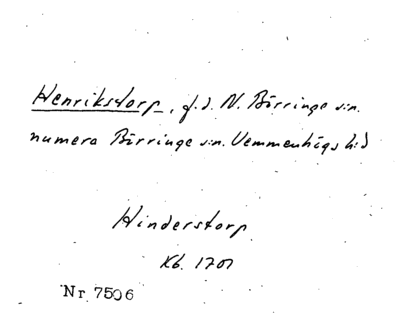 Henrikstorp, f.d. N. Börringe s:n.
numera Börringe s:n. Vemmenhögs h:d
Hinderstorp
Kb. 1701
Nr 7506